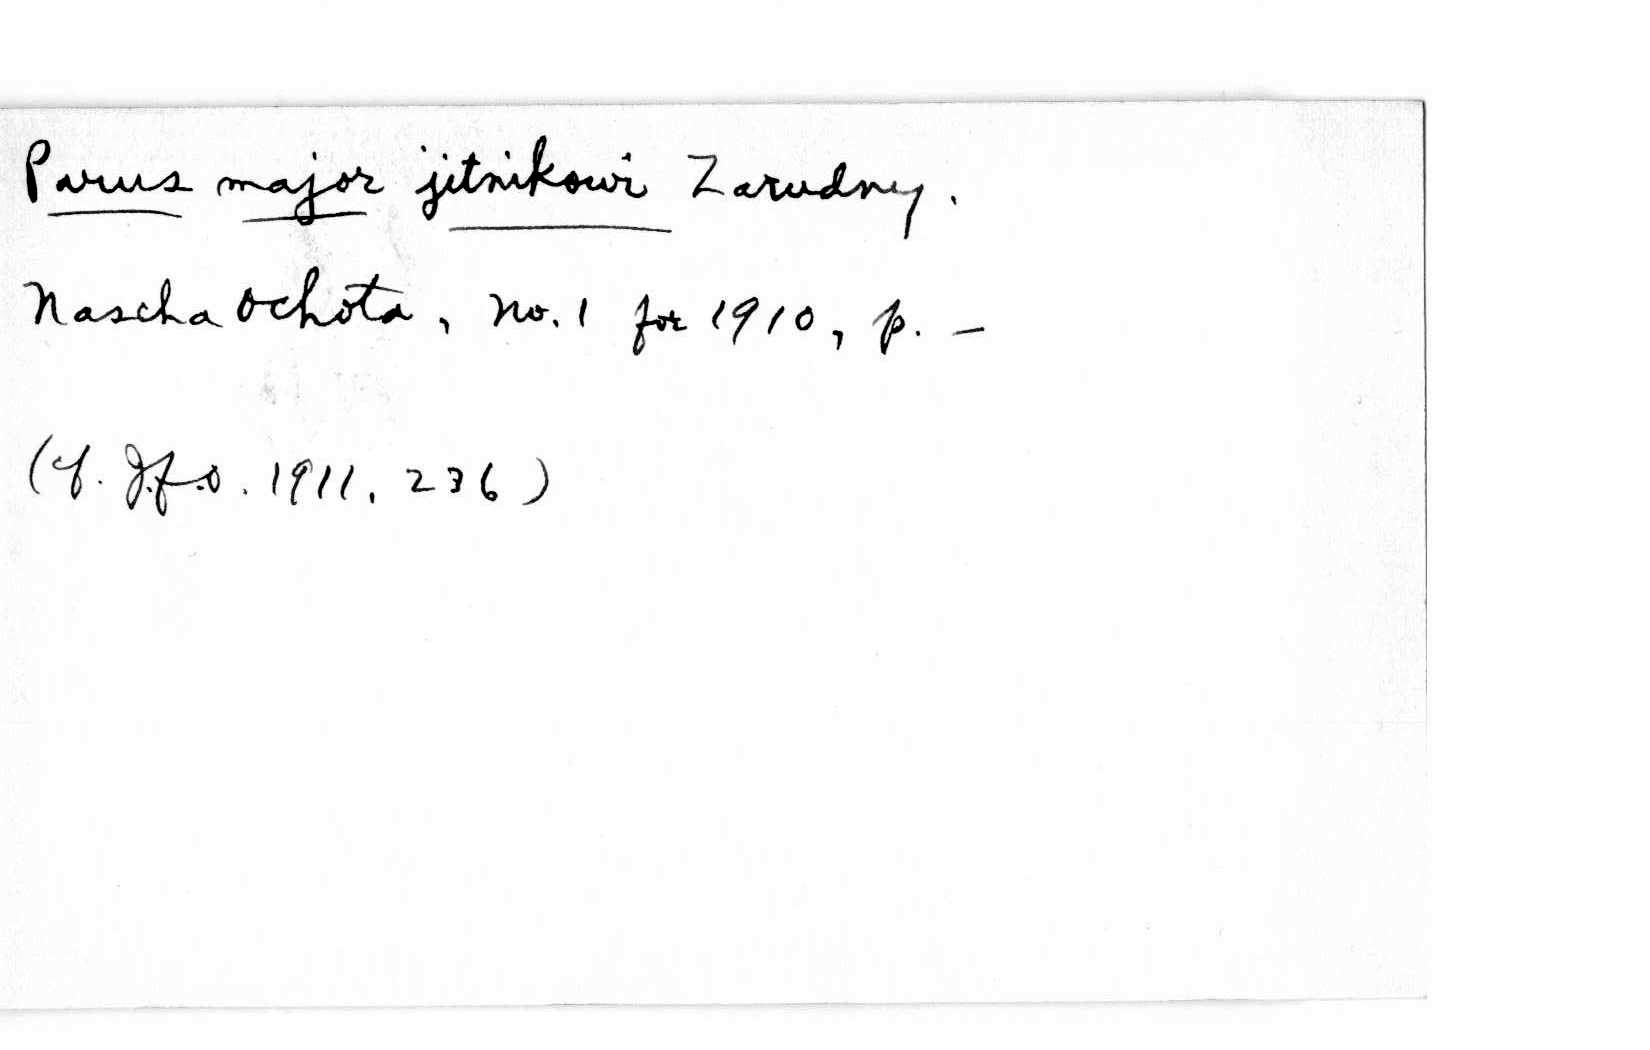 Parus major jitnikowi Zarudny.
Nascha Ochota, No. 1 for 1910, p. —
(cf. J.f.O. 1911, 236)